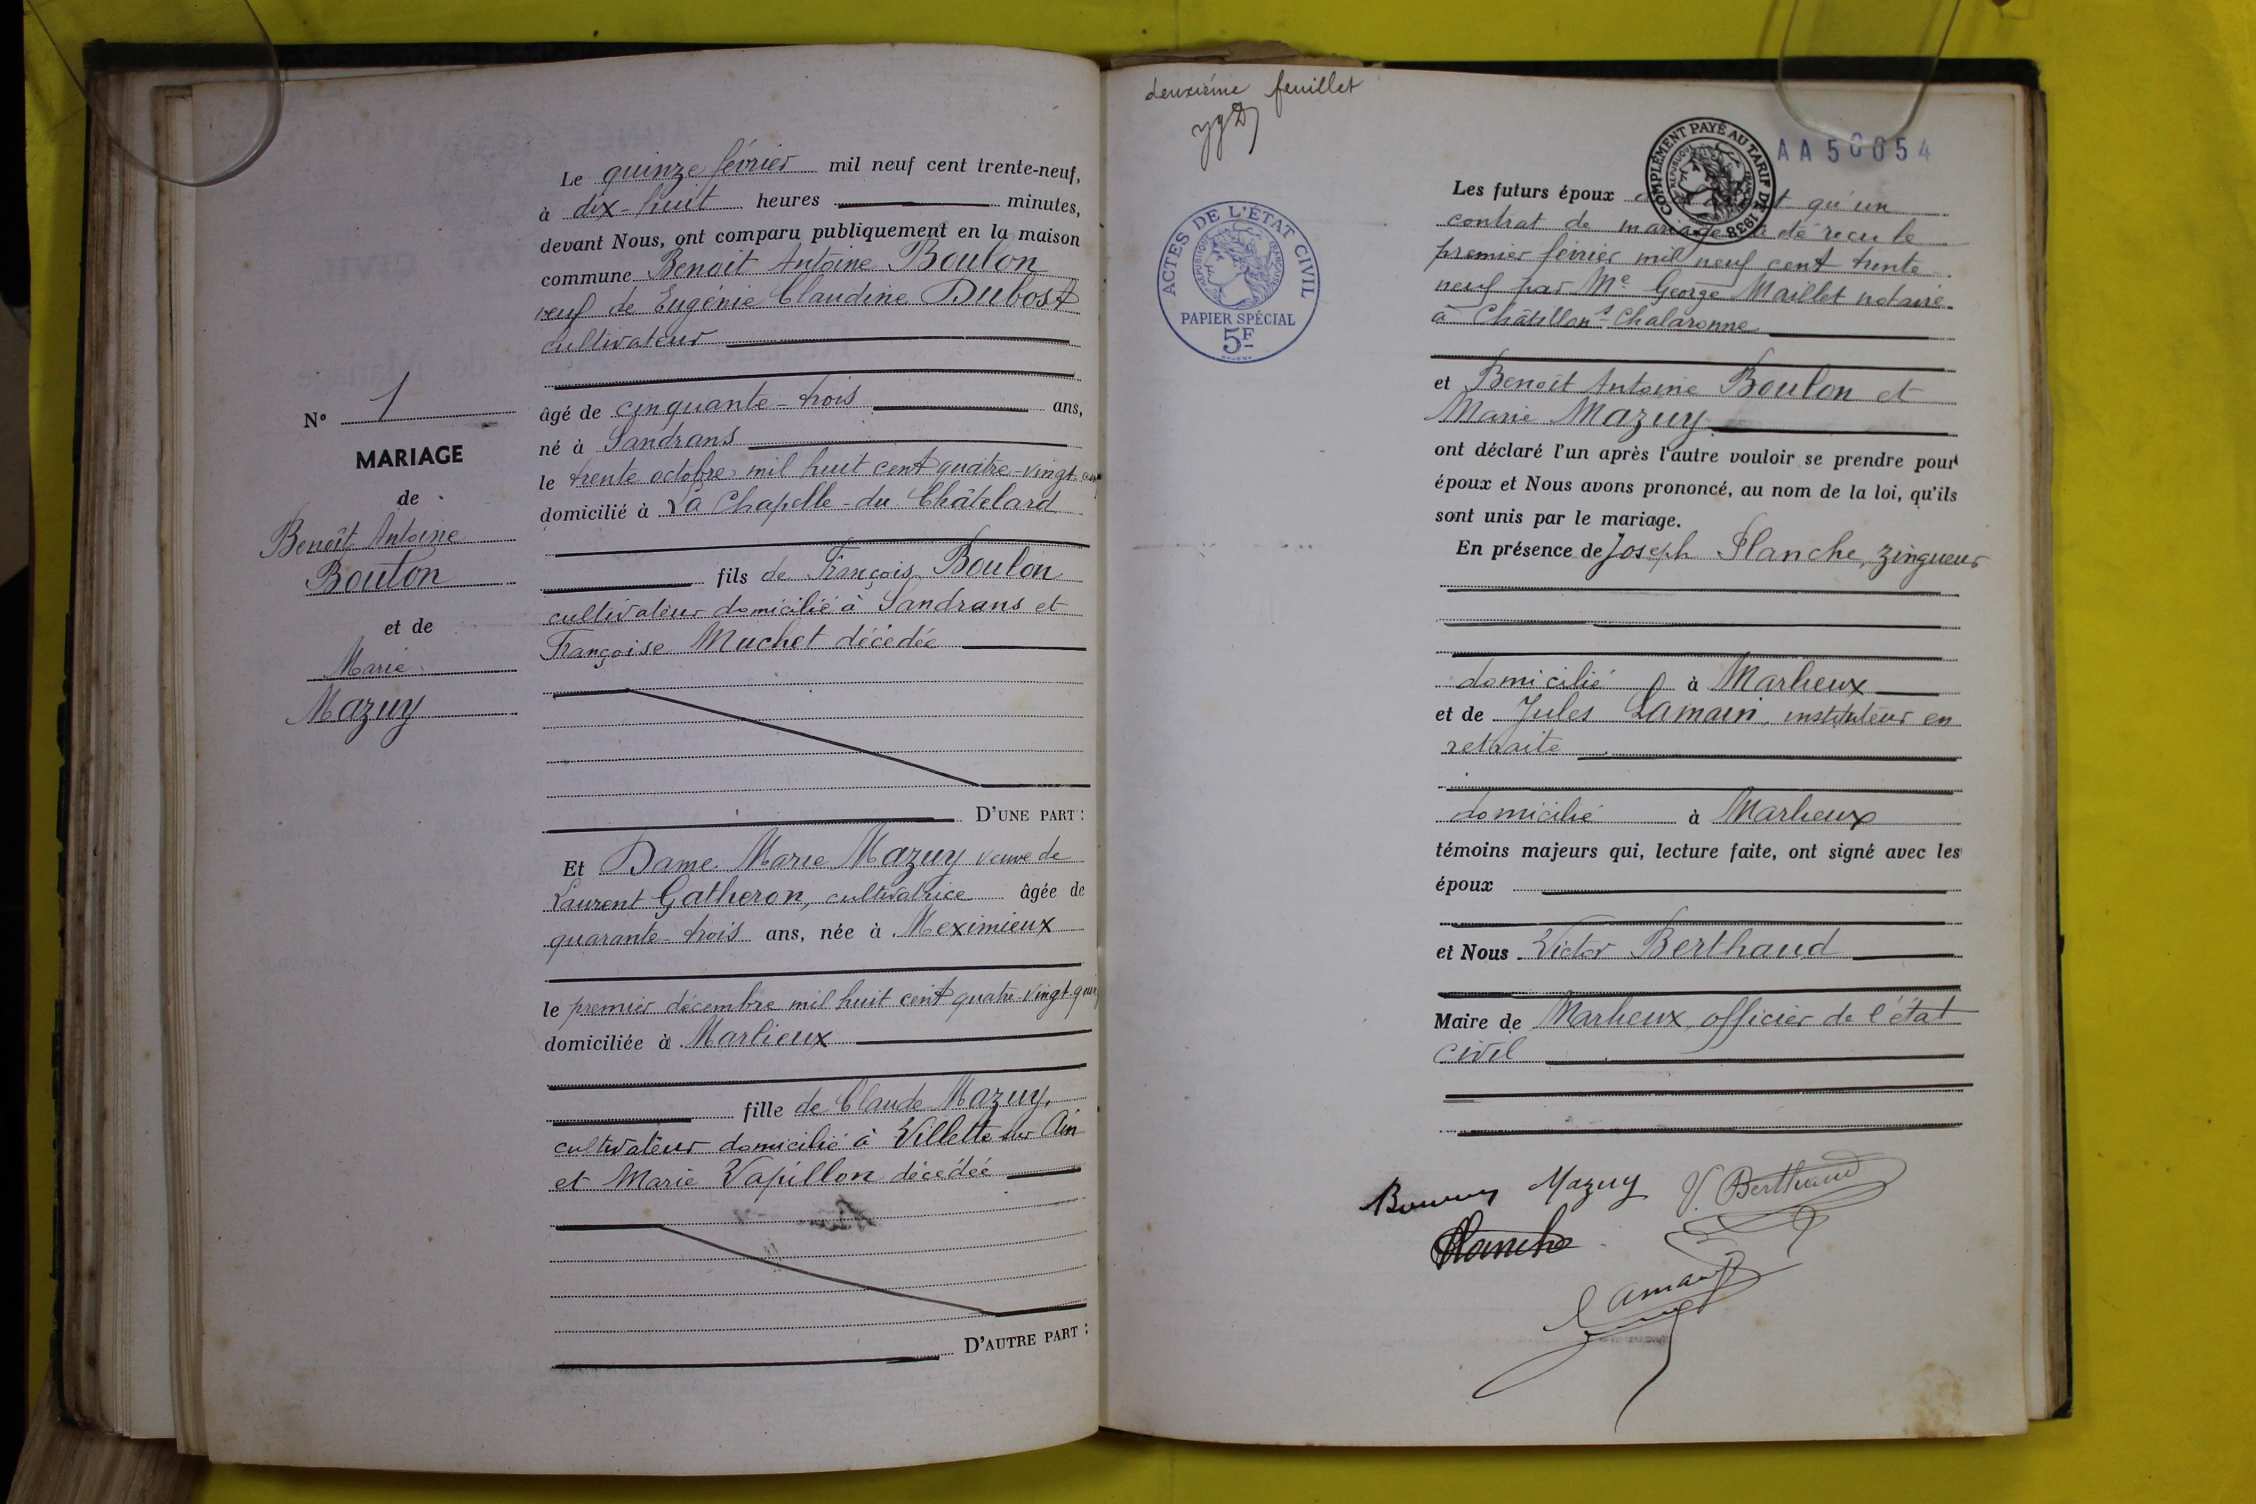 N° 1
MARIAGE
de
Benoît Antoine
Boulon
et de
Marie
Mazuy
Le quinze février mil neuf cent trente-neuf,
à dix-huit heures minutes,
devant Nous, ont comparu publiquement en la maison
commune Benoit Antoine Boulon
veuf de Eugénie Claudine Dubost
cultivateur
âgé de cinquante-trois ans,
né à Sandrans
le trente octobre mil huit cent quatre-vingt
domicilié à La Chapelle-du Châtelard
fils de François Boulon
cultivateur domicilié à Sandrans et
Françoise Muchet décédée
D'UNE PART :
Et Dame Marie Mazuy veuve de
Laurent Gatheron, cultivatrice âgée de
quarante-trois ans, née à Meximieux
le premier décembre mil huit cent quatre-vingt-quin
domiciliée à Marlieux
fille de Claude Mazuy,
cultivateur domicilié à Villette sur Ain
et Marie Vapillon décédée
D'AUTRE PART :
deuxième feuillet
ACTES DE L'ÉTAT CIVIL
RÉPUBLIQUE FRANÇAISE
PAPIER SPÉCIAL
5F
COMPLÉMENT PAYÉ AU TARIF DE 1938
AA50654
Les futurs époux qu'un
contrat de mariage a été reçu le
premier février mil neuf cent trente
neuf par Me George Maillet notaire
à Châtillon s Chalaronne
et Benoît Antoine Boulon et
Marie Mazuy
ont déclaré l'un après l'autre vouloir se prendre pour
époux et Nous avons prononcé, au nom de la loi, qu'ils
sont unis par le mariage.
En présence de Joseph Planche, zingueur
domicilié à Marlieux
et de Jules Lamain, instituteur en
retraite
domicilié à Marlieux
témoins majeurs qui, lecture faite, ont signé avec les
époux
et Nous Victor Berthaud
Maire de Marlieux, officier de l'état
civil
Mazuy V. Berthaud
Planche